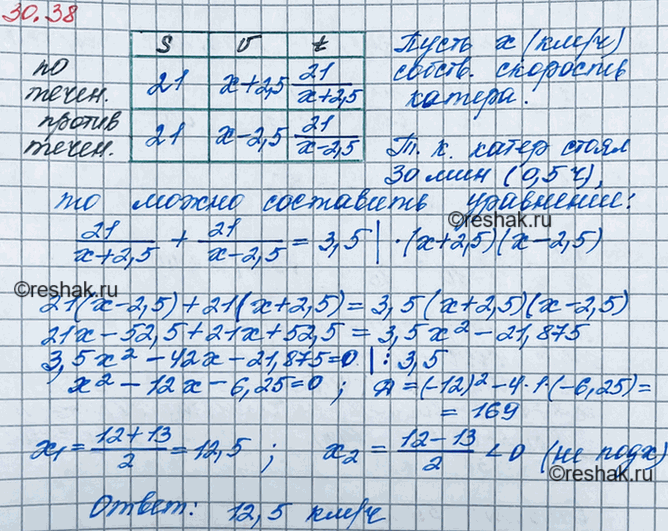 30.38
S v t
по течен. 21 x+2,5 21/(x+2,5)
против течен. 21 x-2,5 21/(x-2,5)
Пусть x (км/ч)
собств. скорость
катера.
Т. к. катер стоял
30 мин (0,5 ч),
то можно составить уравнение:
©reshak.ru
21/(x+2,5) + 21/(x-2,5) = 3,5 | ·(x+2,5)(x-2,5)
©reshak.ru
21(x-2,5)+21(x+2,5)=3,5(x+2,5)(x-2,5)
21x-52,5+21x+52,5=3,5x²-21,875
3,5x²-42x-21,875=0 |:3,5
x²-12x-6,25=0; Д=(-12)²-4·1·(-6,25)=
=169
x₁=(12+13)/2=12,5; x₂=(12-13)/2<0 (не подх)
©reshak.ru
Ответ: 12,5 км/ч